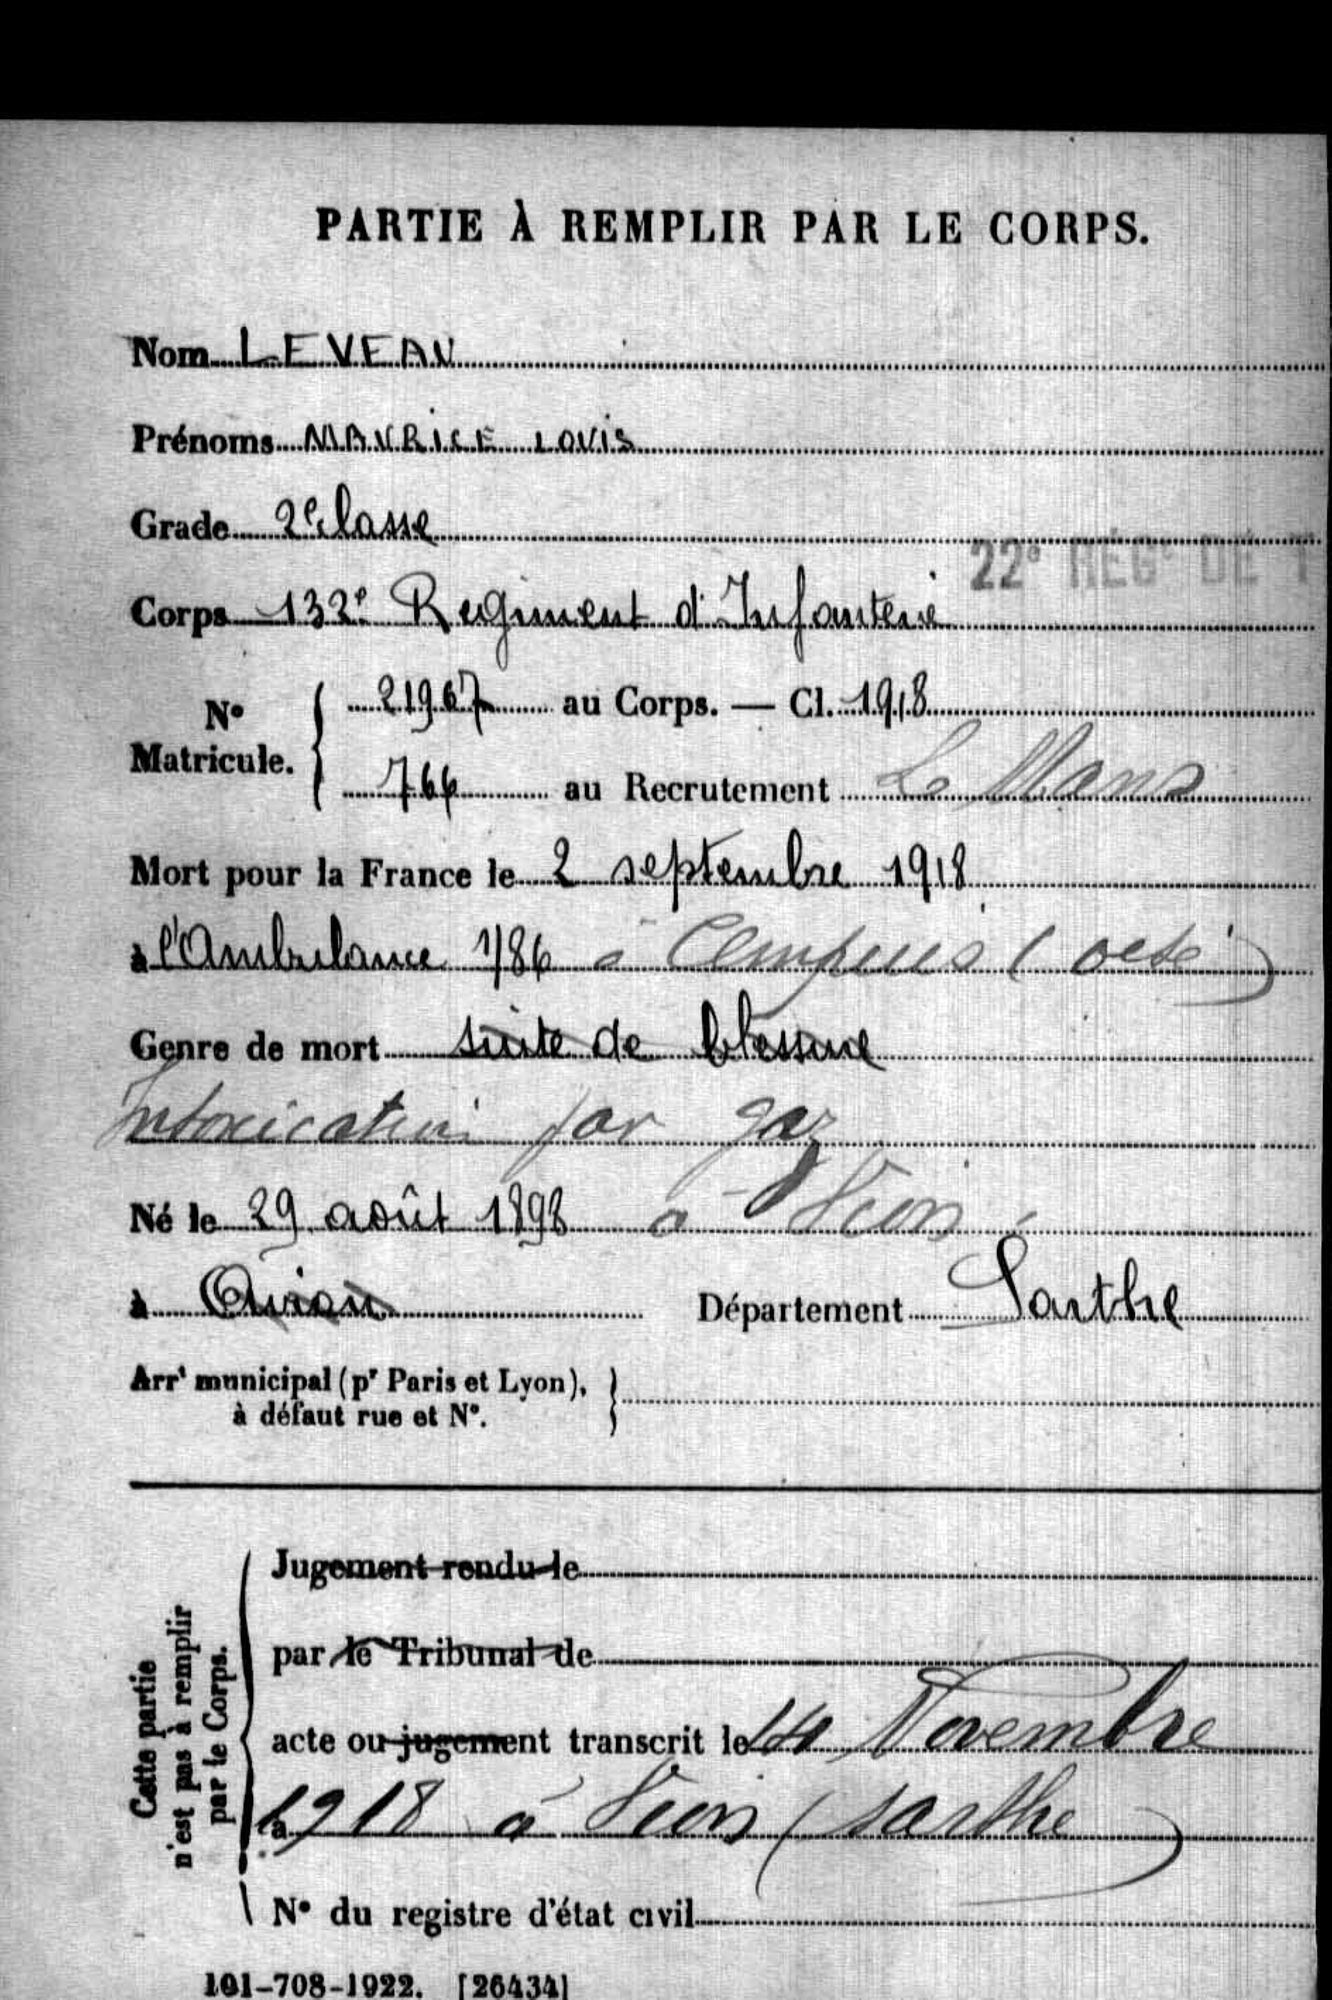 PARTIE À REMPLIR PAR LE CORPS.
Nom LEVEAU
Prénoms MAURICE LOUIS
Grade 2e classe
22e RÉGt DE T
Corps 132e Regiment d'Infanterie
No Matricule. { 21967 au Corps. — Cl. 1918
766 au Recrutement Le Mans
Mort pour la France le 2 septembre 1918
à l'Ambulance 1/86 à Cempuis (oise)
Genre de mort suite de blessure
Intoxication par gaz
Né le 29 août 1898 à Vion
à Avion Département Sarthe
Arrt municipal (pr Paris et Lyon), }
à défaut rue et No.
Cette partie
n'est pas à remplir
par le Corps.
Jugement rendu le
par le Tribunal de
acte ou jugement transcrit le 14 Novembre
à 1918 à Vion (Sarthe)
No du registre d'état civil
101-708-1922. [26434]